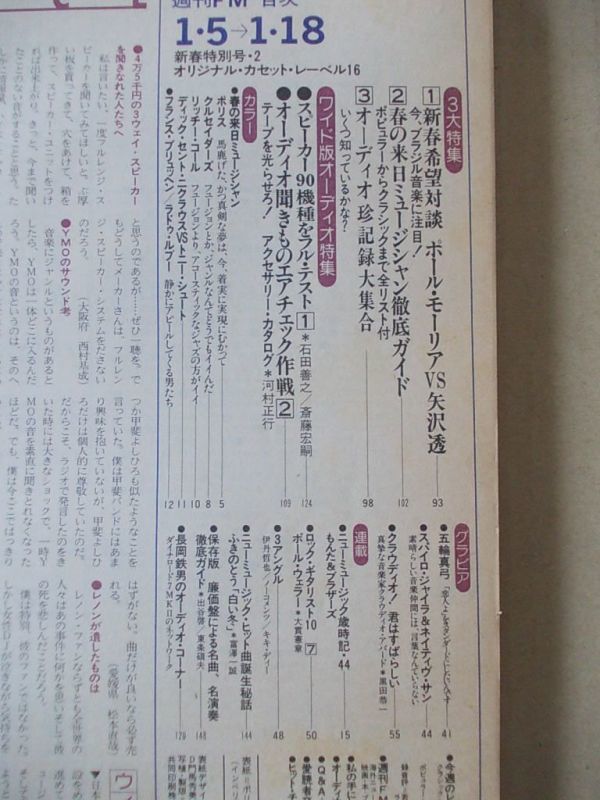 週刊FM 目次
1・5→1・18
新春特別号・2
オリジナル・カセット・レーベル16
3大特集
1 新春希望対談 ポール・モーリアVS矢沢透 93
今、ブラジル音楽に注目!
2 春の来日ミュージシャン徹底ガイド 102
ポピュラーからクラシックまで全リスト付
3 オーディオ珍記録大集合 98
いくつ知っているかな?
ワイド版オーディオ特集
●スピーカー90機種をラル・テスト1 *石田善之/斎藤宏嗣 124
●オーディオ聞きものエアチェック作戦2 109
テープを光らせろ! アクセサリー・カタログ*河村正行
カラー
●春の来日ミュージシャン
ポリス 馬鹿げた、かつ真剣な夢は、今、着実に実現にむかって 5
クルセイダーズ フュージョンとか、ジャンルなんてどうでもイイんだ 8
リッチー・コール フュージョンより、アコースティックなジャズの方がイイ 10
ディック・セント・ニクラウスVSトニー・シュート 11
フランス・ブリュッヘン/ラドゥ・ルプー 静かにアピールしてくる男たち 12
グラビア
●五輪真弓 「恋人よ」をスタンダードにしたいんです 41
●スパイロ・ジャイラ&ネイティヴ・サン 44
素晴らしい音楽仲間には、言葉なんていらない
●クラウディオ/君はすばらしい 55
真摯な音楽家クラウディオ・アバード*黒田恭一
連載
●ニューミュージック歳時記・44 15
もんた&ブラザーズ
●ロック・ギタリスト10 7 50
ポール・ウェラー*大貫憲章
●3アングル 48
伊丹哲也/ノーコメンツ/キキ・ディー
●ニューミュージック・ヒット曲誕生秘話 144
ふきのとう「白い冬」*富澤一誠
●保存版 廉価盤による名曲、名演奏 148
徹底ガイド*出谷啓、東条碩夫
●長岡鉄男のオーディオ・コーナー 170
ダイナロード7MKIIのネットワーク
●4万5千円の3ウェイ・スピーカー
を聞きなれた人たちへ
私は言いたい。一度フルレンジ・ス
ピーカーを聞いてみてほしいと。ぶ厚
い板を買ってきて、穴をあけて、箱を
作って、スピーカー・ユニットをつけ
れば出来上がり。きっと、今まで聞い
たことのない音がすることと思う。た
と思うのであるが……ぜひ一聴を。で
もどうしてメーカーさんは、フルレン
ジ・スピーカー・システムをださない
のだろう。 (大阪府 西村基成)
●YMOのサウンド考
音楽にジャンルというものがあると
したら、YMOは一体どこに入るんだ
ろう。YMOの音というのは、そのへ
つか甲斐よしひろも似たようなことを
言っていた。僕は甲斐バンドにはあま
り興味を抱いていないが、甲斐よしひ
ろだけは個人的に尊敬していたのだ。
だからこそ、ラジオで発言したのをき
いた時には大きなショックで、一時Y
MOの音を素直に聞きとれなくなった
ほどだ。でも、僕は今ここではっきり
はずがない。曲だけが良いなら必ず売
れる。 (愛媛県 松本直哉)
●レノンが遺したものは
レノン・ファンならずとも全世界の
人々はあの事件に何かを思いそして彼
の死を悲しんだことだろう。
僕は特別、彼のファンではなかった。
しかし女性DJがなきながら気持ちを